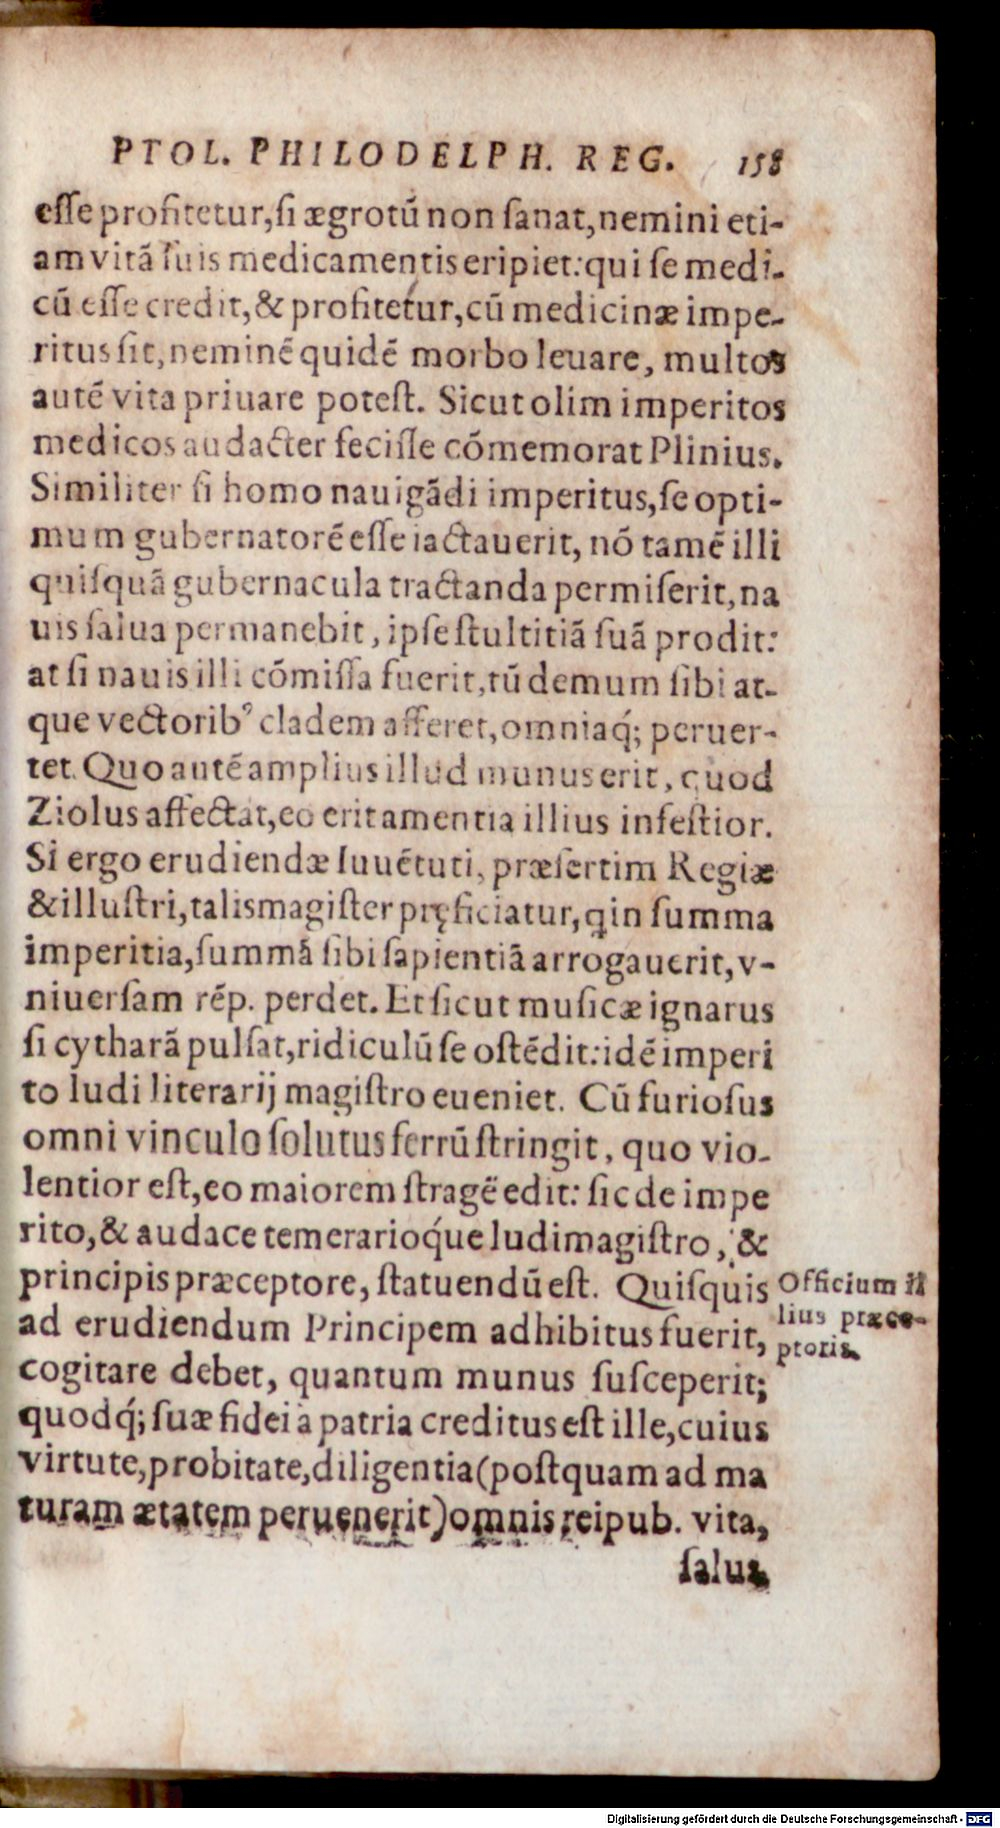 PTOL. PHILODELPH. REG. 158
eſſe profitetur, ſi ægrotũ non ſanat, nemini eti-
am vitã ſuis medicamentis eripiet: qui ſe medi-
cũ eſſe credit, & profitetur, cũ medicinæ impe-
ritus ſit, neminẽ quidẽ morbo leuare, multos
autẽ vita priuare poteſt. Sicut olim imperitos
medicos audacter feciſſe cõmemorat Plinius.
Similiter ſi homo nauigãdi imperitus, ſe opti-
mum gubernatorẽ eſſe iactauerit, nõ tamẽ illi
quiſquã gubernacula tractanda permiſerit, na
uis ſalua permanebit, ipſe ſtultitiã ſuã prodit:
at ſi nauis illi cõmiſſa fuerit, tũ demum ſibi at-
que vectorib⁹ cladem afferet, omniaq́; peruer-
tet. Quo autẽ amplius illud munus erit, quod
Ziolus affectat, eo erit amentia illius infeſtior.
Si ergo erudiendæ Iuuẽtuti, præſertim Regiæ
& illuſtri, talis magiſter pręficiatur, q in ſumma
imperitia, ſummã ſibi ſapientiã arrogauerit, v-
niuerſam rẽp. perdet. Et ſicut muſicæ ignarus
ſi cytharã pulſat, ridiculũ ſe oſtẽdit: idẽ imperi
to ludi literarij magiſtro eueniet. Cũ furioſus
omni vinculo ſolutus ferrũ ſtringit, quo vio-
lentior eſt, eo maiorem ſtragẽ edit: ſic de impe
rito, & audace temerarioq́ue ludimagiſtro, &
principis præceptore, ſtatuendũ eſt. Quiſquis
ad erudiendum Principem adhibitus fuerit,
cogitare debet, quantum munus ſuſceperit;
quodq́; ſuæ fidei à patria creditus eſt ille, cuius
virtute, probitate, diligentia (poſtquam ad ma
turam ætatem peruenerit) omnis reipub. vita,
ſalus
Officium il
lius præce-
ptoris.
Digitalisierung gefördert durch die Deutsche Forschungsgemeinschaft - DFG